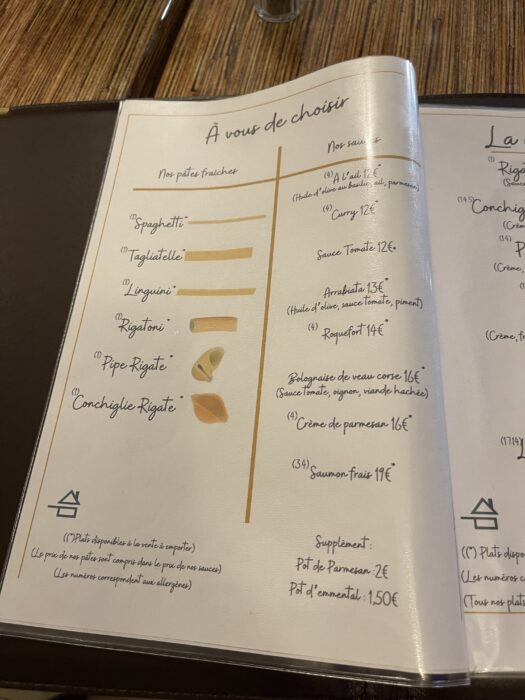 À vous de choisir
Nos pâtes fraîches
(1)Spaghetti*
(1)Tagliatelle*
(1)Linguini*
(1)Rigatoni*
(1)Pipe Rigate*
(1)Conchiglie Rigate*
((*)Plats disponibles à la vente à emporter)
(Le prix de nos pâtes sont compris dans le prix de nos sauces)
(Les numéros correspondent aux allergènes)
Nos sauces
(4)A l'ail 12€*
(Huile d'olive au basilic, ail, parmesan)
(4)Curry 12€*
Sauce Tomate 12€*
Arrabiata 13€*
(Huile d'olive, sauce tomate, piment)
(4) Roquefort 14€*
Bolognaise de veau corse 16€*
(Sauce tomate, oignon, viande hachée)
(4)Crème de parmesan 16€*
(3.4)Saumon frais 19€*
Supplément :
Pot de Parmesan : 2€
Pot d'emmental : 1,50€
La
(1)
((*) Plats
(Les numéros
(Tous nos plats